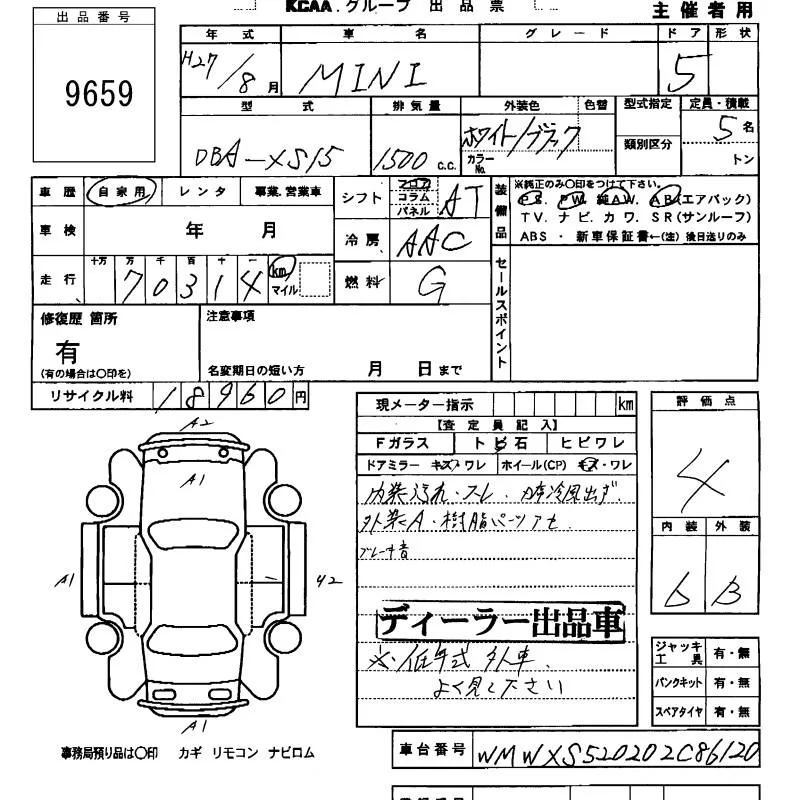 KCAA.グループ 出品票
主催者用
出品番号
9659
年式 車名 グレード ドア 形状
H27/8月 MINI 5
型式 排気量 外装色 色替 型式指定 定員・積載
類別区分
DBA-XS15 1500 c.c. ホワイト/ブラック 5名
カラーNo. トン
車歴 自家用 レンタ 事業.営業車
シフト フロア コラム パネル AT
装備品
※純正のみ〇印をつけて下さい。
PS. PW. 純AW. AB(エアバック)
TV. ナビ. カワ. SR(サンルーフ)
ABS ・ 新車保証書←(注)後日送りのみ
車検 年 月
冷房 AAC
走行 十万 万 千 百 十 一
70314 km マイル
燃料 G
セールスポイント
修復歴 箇所
有
(有の場合は〇印を)
注意事項
名変期日の短い方 月 日まで
リサイクル料 18960円
現メーター指示 km
【査定員記入】
Fガラス トビ石 ヒビワレ
ドアミラー キズ・ワレ ホイール(CP) キズ・ワレ
内装汚れ・スレ.
外装A・樹脂パーツアセ.
ブレーキ音
ディーラー出品車
※低年式 外車.
よく見て下さい
評価点
4
内装 外装
b B
A2
A1
A1
A1
ジャッキ 工具 有・無
パンクキット 有・無
スペアタイヤ 有・無
事務局預り品は〇印 カギ リモコン ナビロム
車台番号 WMWXS520202C86120